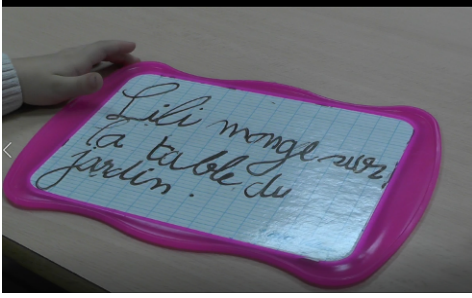 Lili monge sur
la table du
jardin.